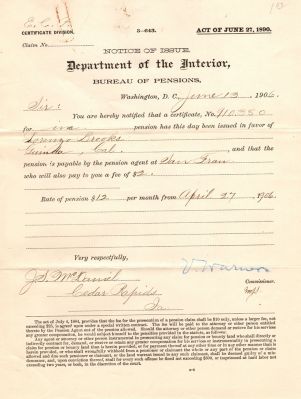 CERTIFICATE DIVISION,
3-643.
ACT OF JUNE 27, 1890.
Claim No.
NOTICE OF ISSUE.
Department of the Interior,
BUREAU OF PENSIONS,
Washington, D. C., June 13, 1906
Sir:
You are hereby notified that a certificate, No. 910,350
for inv pension has this day been issued in favor of
Lorenzo Crooks
Guinda Cal., and that the
pension is payable by the pension agent at San Fran
who will also pay to you a fee of $2.
Rate of pension $12 per month from April 27, 1906.
Very respectfully,
V. Warner
Commissioner.
J. S. McDaniel
Cedar Rapids
Ia
The act of July 4, 1884, provides that the fee for the presentation of a pension claim shall be $10 only, unless a larger fee, not
exceeding $25, is agreed upon under a special written contract. The fee will be paid to the attorney or other person entitled
thereto by the Pension Agent out of the pension allowed. Should the attorney or other person demand or receive for his services
any greater compensation, he would subject himself to the penalties provided in the statute, as follows:
Any agent or attorney or other person instrumental in prosecuting any claim for pension or bounty land who shall directly or
indirectly contract for, demand, or receive or retain any greater compensation for his services or instrumentality in prosecuting a
claim for pension or bounty land than is herein provided, or for payment thereof at any other time or in any other manner than is
herein provided, or who shall wrongfully withhold from a pensioner or claimant the whole or any part of the pension or claim
allowed and due such pensioner or claimant, or the land warrant issued to any such claimant, shall be deemed guilty of a mis-
demeanor, and, upon conviction thereof, shall for every such offense be fined not exceeding $500, or imprisoned at hard labor not
exceeding two years, or both, in the discretion of the court.